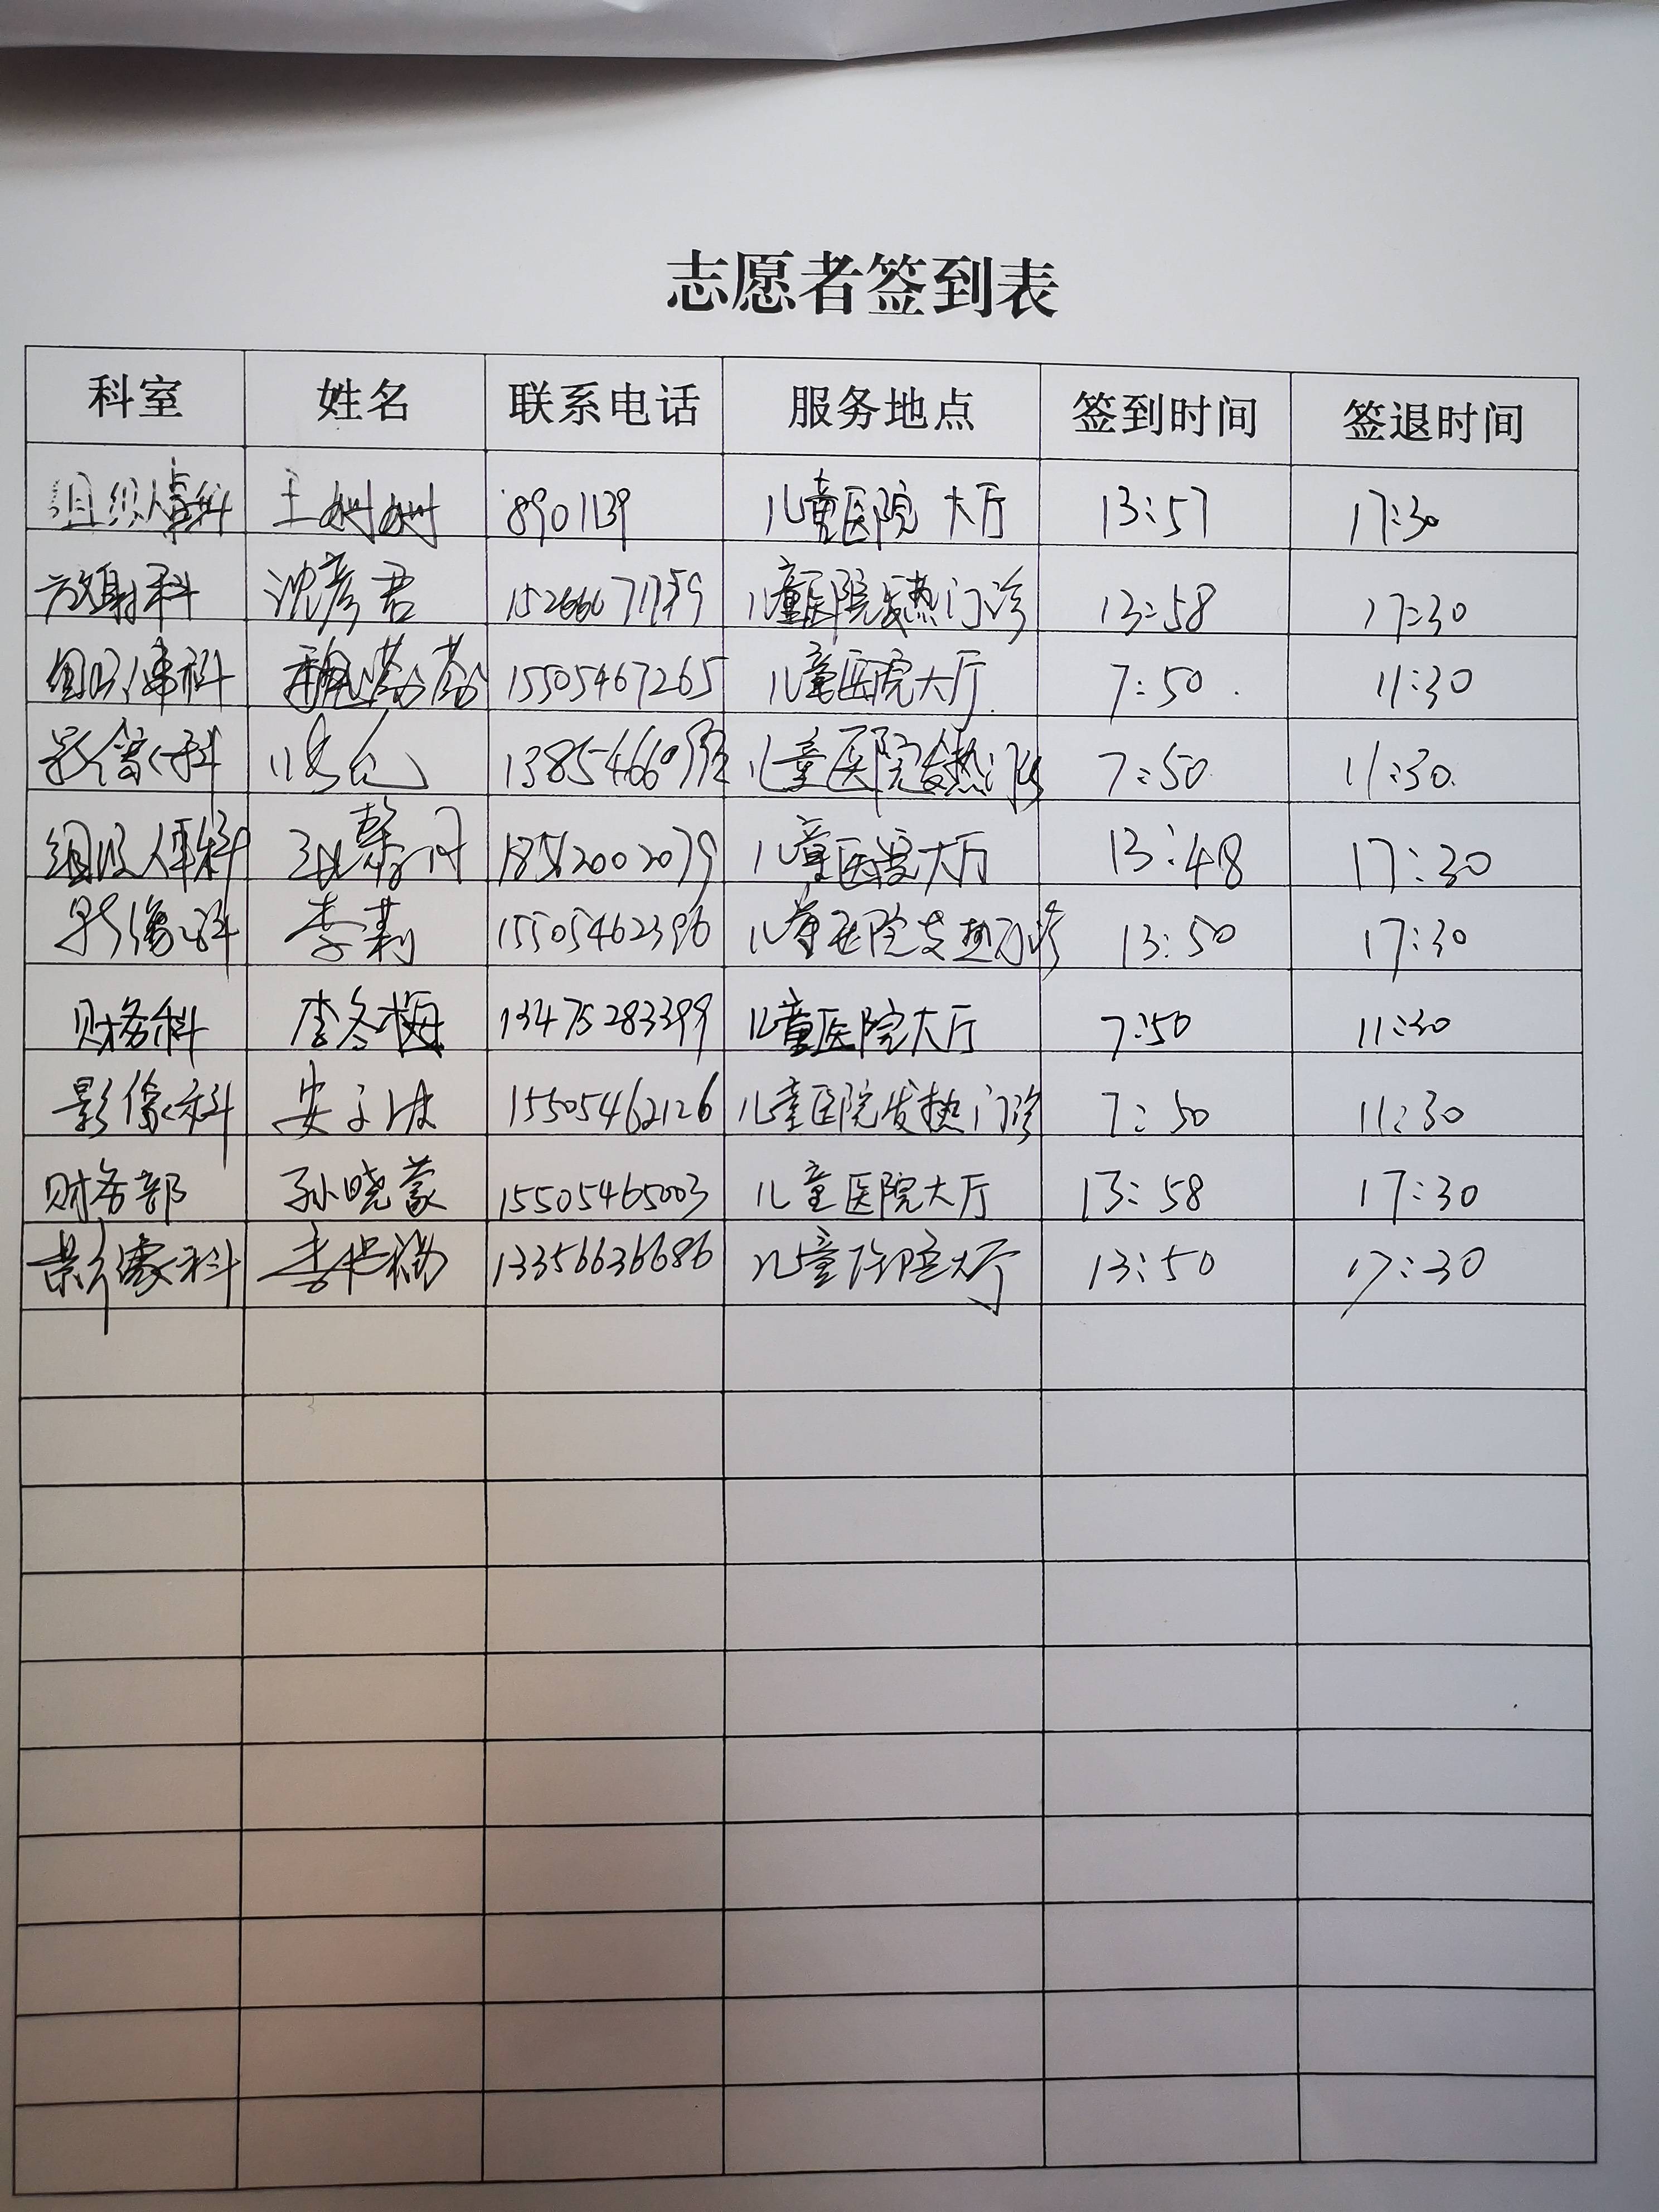 志愿者签到表
科室 姓名 联系电话 服务地点 签到时间 签退时间
组织人事科 王姗姗 8901139 儿童医院 大厅 13:57 17:30
放射科 沈彦君 儿童医院发热门诊 13:58 17:30
组织人事科 魏 15505467265 儿童医院大厅 7:50 11:30
影像科 儿童医院发热门诊 7:50 11:30
组织人事科 18562002079 儿童医院大厅 13:48 17:30
影像科 李莉 15505462396 儿童医院发热门诊 13:50 17:30
财务科 李冬梅 13475283399 儿童医院大厅 7:50 11:30
影像科 安 15505462126 儿童医院发热门诊 7:50 11:30
财务部 孙晓蒙 15505465003 儿童医院大厅 13:58 17:30
影像科 李 13356636686 儿童医院大厅 13:50 17:30